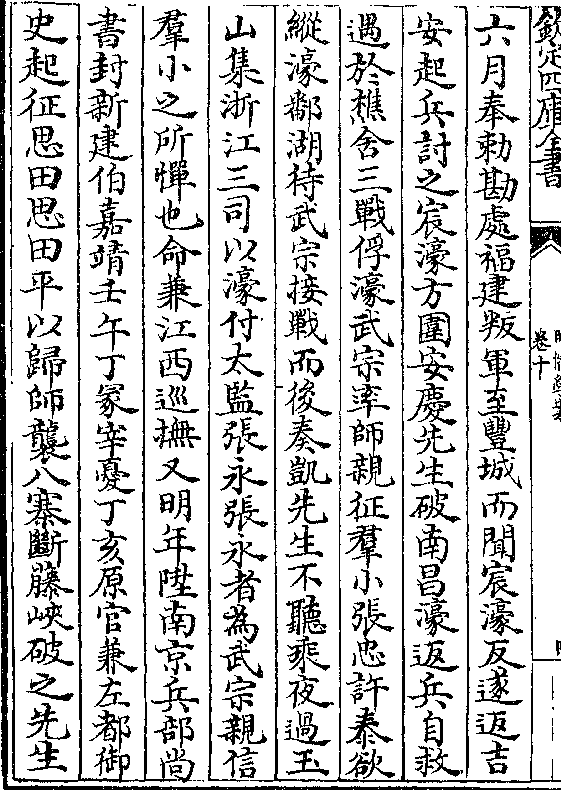 欽定四庫全書
卷十
六月奉勅勘處福建叛軍至豐城而聞宸濠反遂返吉
安起兵討之宸濠方圍安慶先生破南昌濠返兵自救
遇於樵舍三戰俘濠武宗率師親征羣小張忠許泰欲
縱濠鄱湖待武宗接戰而後奏凱先生不聽乘夜過玉
山集浙江三司以濠付太監張永張永者為武宗親信
羣小之所憚也命兼江西巡撫又明年陞南京兵部尚
書封新建伯嘉靖壬午丁冢宰憂丁亥原官兼左都御
史起征思田思田平以歸師襲八寨斷藤峽破之先生